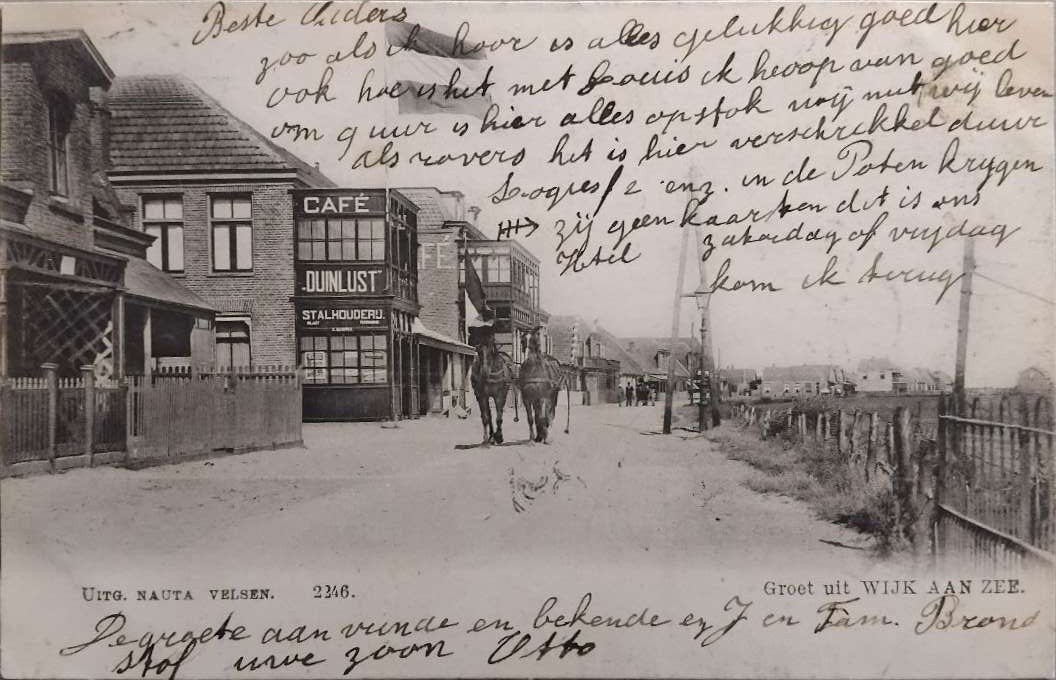 Beste Ouders
zoo als ik hoor is alles gelukkig goed hier
ook hoe is het met Louis ik hoop van goed
om 9 uur is hier alles op stok wij leven
als rovers het is hier verschrikkel duur
Logies f 2 enz. in de Poten krygen
zij geen kaarten dit is ons
Hotel zaterdag of vrydag
kom ik terug
CAFÉ
"DUINLUST"
STALHOUDERIJ.
FÉ
UITG. NAUTA VELSEN. 2246.
Groet uit WIJK AAN ZEE.
De groete aan vrinde en bekende en J en Fam. Brond
stof uwe zoon Otto